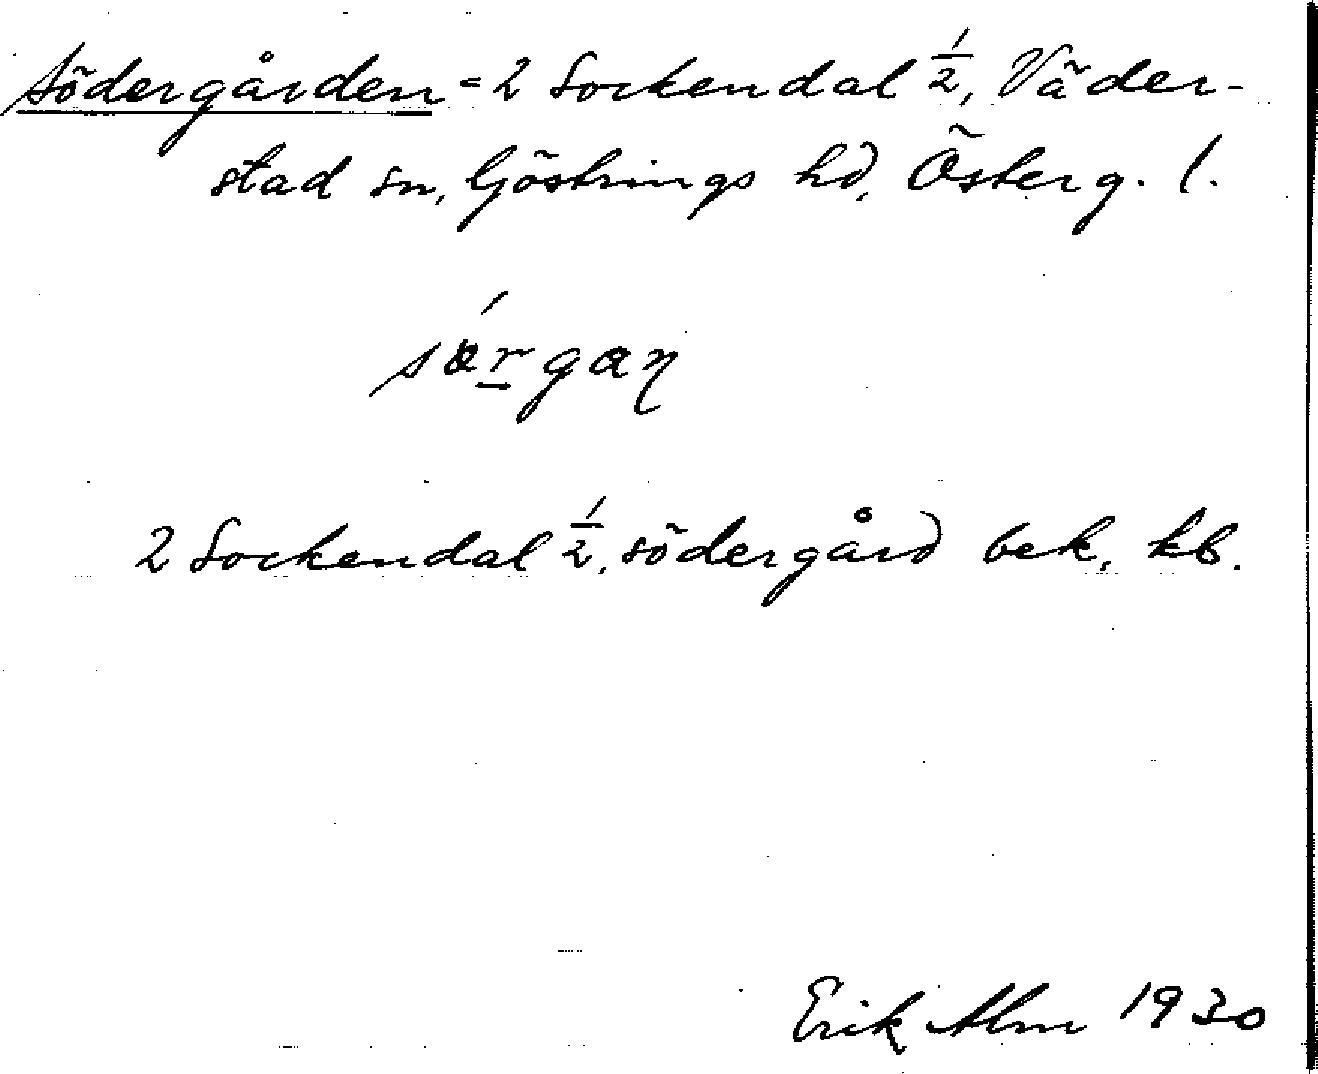 Södergården = 2 Sockendal 1/2, Väder-
stad sn, Göstrings hd, Österg. l.
2 Sockendal 1/2, södergård bek. kb.
Erik Alm 1930